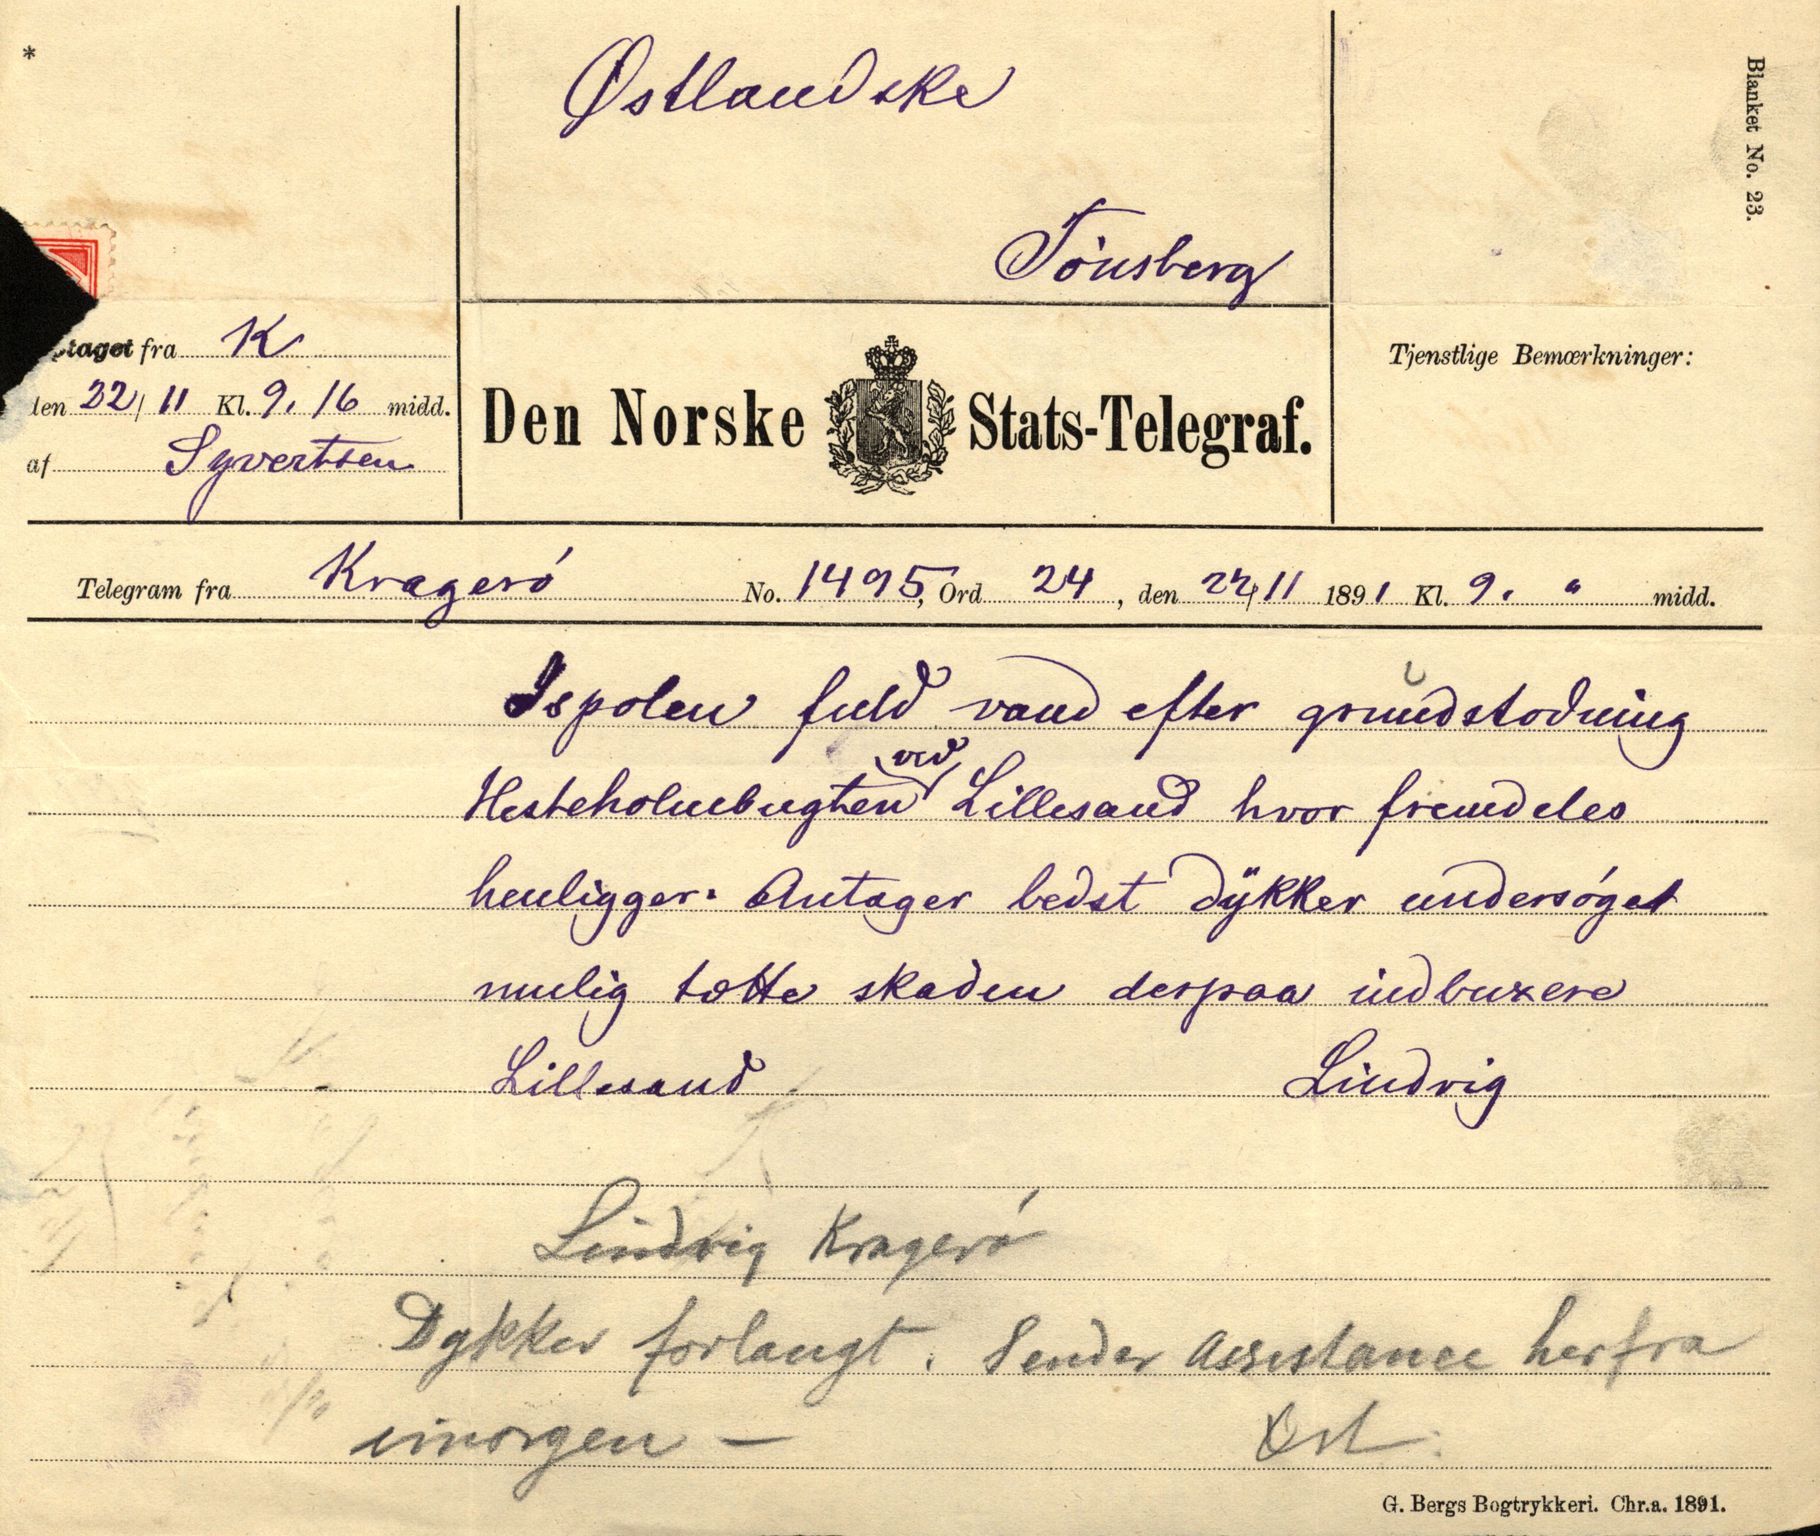 *
Østlandske
Blanket No. 23.
Tönsberg
ptaget fra K
den 22/11 Kl. 9.16 midd.
af Syvertsen
Den Norske Stats-Telegraf.
Tjenstlige Bemærkninger:
Telegram fra Kragerö No. 1495, Ord 24, den 22/11 1891 Kl. 9. " midd.
Ispolen fuld vand efter grundstødning
Hesteholmbugten ved Lillesand hvor fremdeles
henligger. Antager bedst dykker undersöget
mulig tætte skaden derpaa indbuxere
Lillesand Lindvig
Lindvig Kragerö
Dykker forlangt. Sender Assistance herfra
imorgen —
Øst.
G. Bergs Bogtrykkeri. Chr.a. 1891.